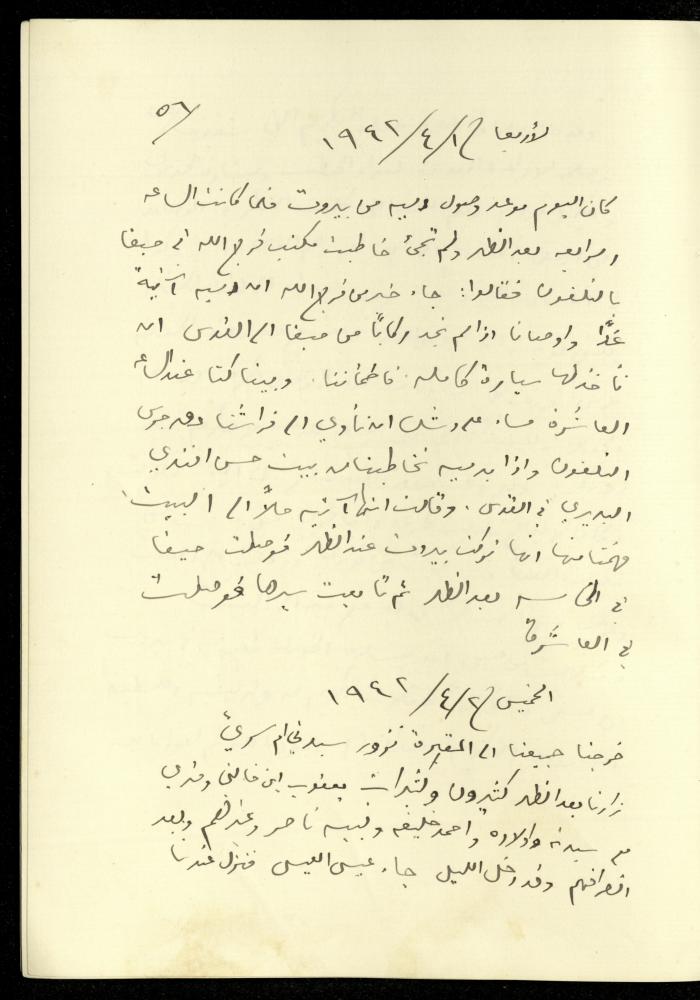 ٥٦
الأربعا ١/٤/١٩٤٢
كان اليوم موعد وصول دميه من بيروت فلما كانت الساعه
الرابعه بعد الظهر ولم تجئ خاطبت مكتب فرج الله في حيفا
بالتلفون فقالوا: جاء خبر من فرج الله ان دميه آتية
غدًا واوصانا اذا لم نجد ركابًا من حيفا الى القدس ان
نأخذ لها سيارة كامله. فاطمأننا. وبينا كنا عند الساعه
العاشرة مساء على وشك ان نأوي الى فراشنا دق جرس
التلفون واذا بدميه تخاطبنا من بيت حسن افندي
البديري في القدس. وقالت انها آتيه حالاً الى البيت.
فهمنا منها انها تركت بيروت عند الظهر فوصلت حيفا
في الخامسه بعد الظهر ثم تابعت سيرها فوصلت
في العاشرة
الخميس ٢/٤/١٩٤٢
خرجنا جميعنا الى المقبرة نزور سيدتي ام سريّ
زارنا بعد الظهر كثيرون وكثيرات يعقوب ابن خالتي وفندي
مع سيدته واولاده واحمد خليفه ولبيبه ناصر وغيرهم وبعد
انصرافهم وقد دخل الليل جاء عيسى العيسى فنزل عندنا